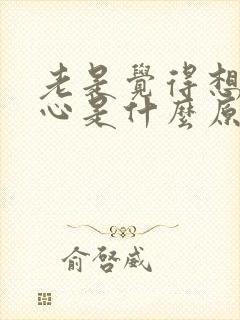 老是覺得想
心是什麼原
俞啓威